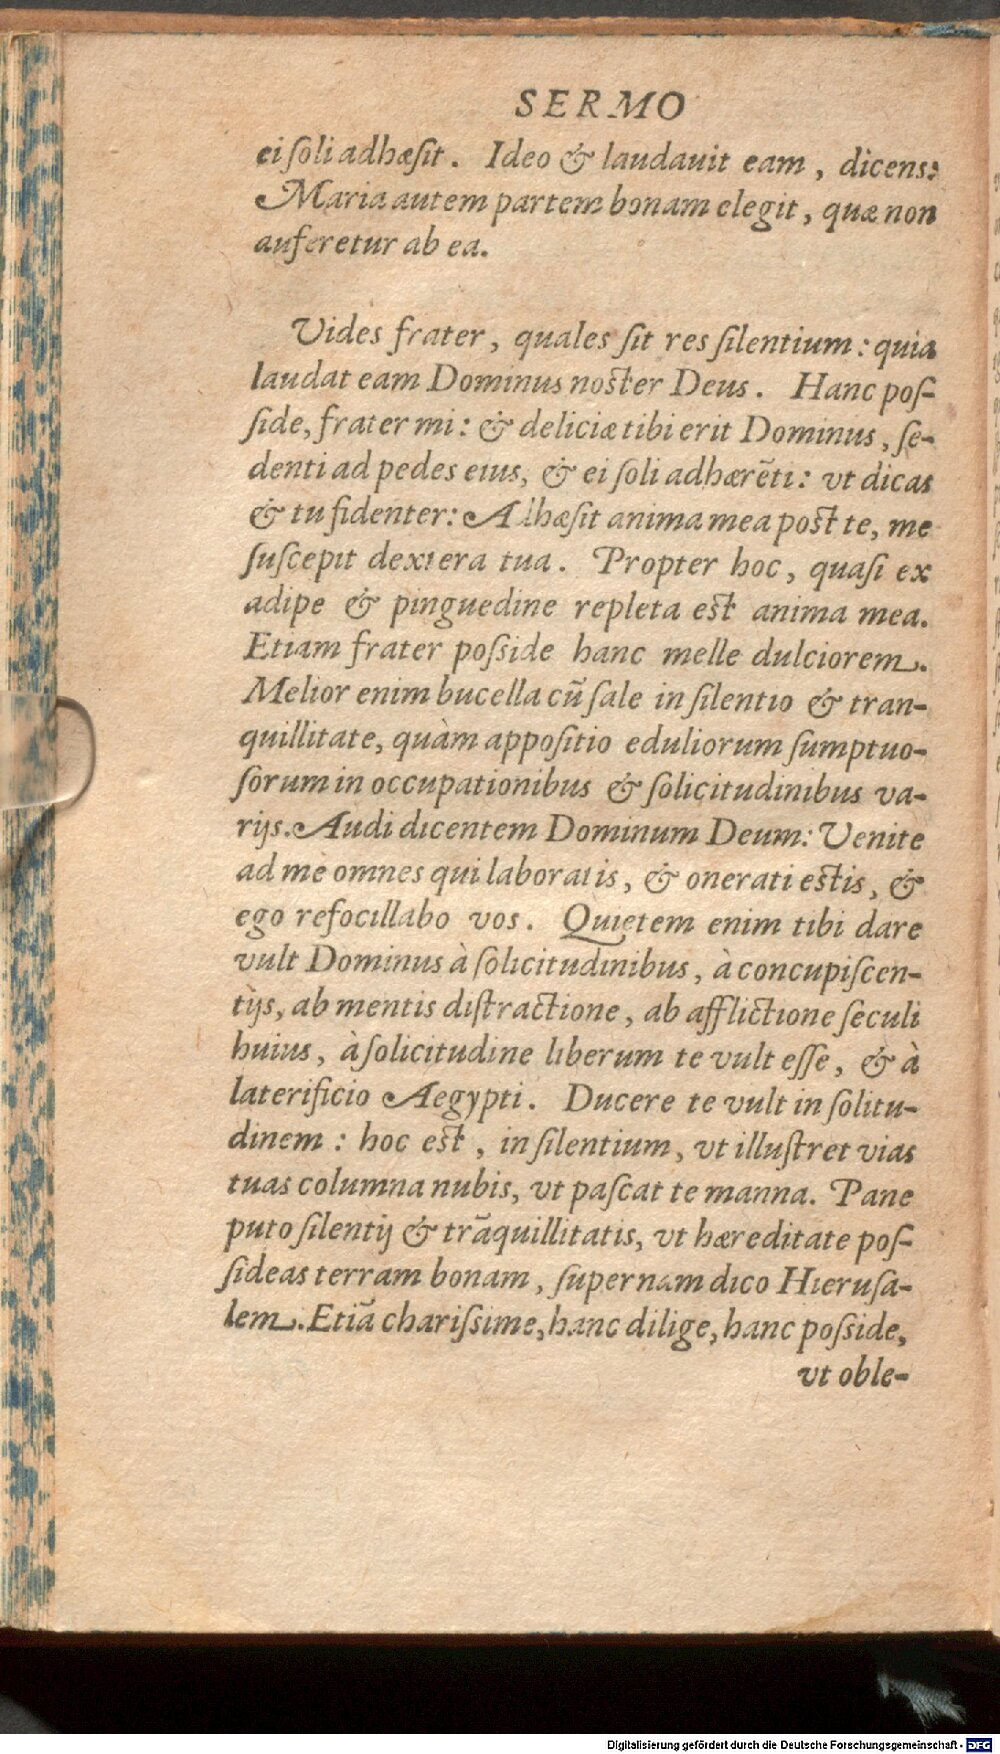 SERMO
ei ſoli adhæſit. Ideo & laudauit eam, dicens:
Maria autem partem bonam elegit, quæ non
auferetur ab ea.
Vides frater, quales ſit res ſilentium: quia
laudat eam Dominus noſter Deus. Hanc poſ-
ſide, frater mi: & deliciæ tibi erit Dominus, ſe-
denti ad pedes eius, & ei ſoli adhærẽti: vt dicas
& tu fidenter: Adhæſit anima mea poſt te, me
ſuſcepit dextera tua. Propter hoc, quaſi ex
adipe & pinguedine repleta eſt anima mea.
Etiam frater poſside hanc melle dulciorem.
Melior enim bucella cũ ſale in ſilentio & tran-
quillitate, quàm appoſitio eduliorum ſumptuo-
ſorum in occupationibus & ſolicitudinibus va-
rijs. Audi dicentem Dominum Deum: Venite
ad me omnes qui laboratis, & onerati eſtis, &
ego refocillabo vos. Quietem enim tibi dare
vult Dominus à ſolicitudinibus, à concupiſcen-
tijs, ab mentis diſtractione, ab afflictione ſeculi
huius, à ſolicitudine liberum te vult eſſe, & à
laterificio Aegypti. Ducere te vult in ſolitu-
dinem: hoc eſt, in ſilentium, vt illuſtret vias
tuas columna nubis, vt paſcat te manna. Pane
puto ſilentij & trãquillitatis, vt hæreditate poſ-
ſideas terram bonam, ſupernam dico Hieruſa-
lem. Etiã chariſsime, hanc dilige, hanc poſside,
vt oble-
Digitalisierung gefördert durch die Deutsche Forschungsgemeinschaft - DFG